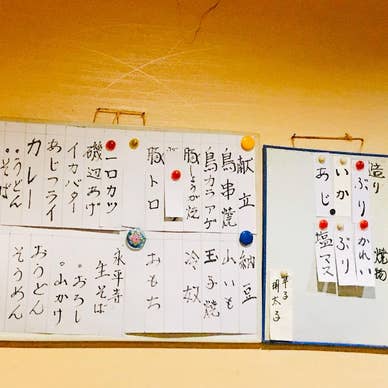 献立
鳥串焼
鳥カラアゲ
豚しょうが焼
豚トロ
一口カツ
磯辺あげ
イカバター
あじフライ
カレー
・うどん
・そば
納豆
山いも
玉子焼
冷奴
おもち
永平寺
生そば
・おろし
・山かけ
おうどん
そうめん
造り
ぶり
いか
あじ
焼物
かれい
ぶり
塩マス
辛子
明太子